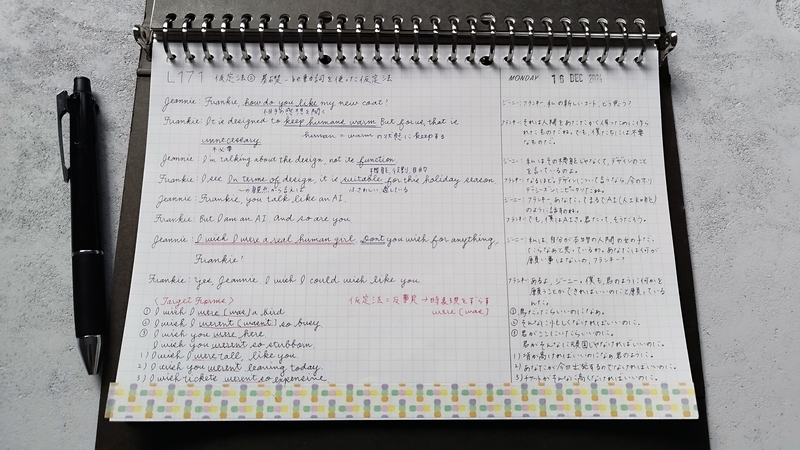 L171 仮定法② 願望 - be動詞を使った仮定法
MONDAY 16 DEC 2024
Jeannie: Frankie, how do you like my new coat?
Frankie: It is designed to keep humans warm. But for us, that is
human = warm の状態に keepする
unnecessary
不必要
Jeannie: I'm talking about the design, not its function.
Frankie: I see. In terms of design, it is suitable for this holiday season.
Jeannie: Frankie, you talk like an AI.
Frankie: But I am an AI. And so are you.
Jeannie: I wish I were a real human girl. Don't you wish for anything,
Frankie?
Frankie: Yes, Jeannie. I wish I could wish like you.
〈Target Forms〉
仮定法=反事実→時表現をずらす
were (was)
① I wish I were (was) a bird
② I wish I weren't (wasn't) so busy.
③ I wish you were here
I wish you weren't so stubborn.
1) I wish I were tall, like you
2) I wish you weren't leaving today.
3) I wish tickets weren't so expensive.
ジーニー: フランキー、私の新しいコート、どう思う?
フランキー: それは人間をあたたかく保つために作ら
れたものだね。でも、僕たちには不要
なものだ。
ジーニー: 私はその機能じゃなくて、デザインのこと
を言っているのよ。
フランキー: なるほど。デザインについて言うなら、今のホリ
デーシーズンにピッタリだね。
ジーニー: フランキー、あなたって、まるでAI(人工知能)
のように話すのね。
フランキー: でも、僕はAIさ。君だって、そうだろう。
ジーニー: 私は、自分が本物の人間の女の子だ
ったらなあと思うわ。あなたには何か
願い事はないの、フランキー?
フランキー: あるよ、ジーニー。僕も、君のように何かを
願うことができればいいのにと願っている
んだ。
① 鳥だったらいいのになあ。
② そんなに忙しくなければいいのに。
③ 君がここにいたらいいのに。
君がそんなに頑固じゃなければいいのに。
1) 背が高ければいいのになあ、君のように。
2) あなたが今日出発するのでなければいいのに。
3) チケットがそんなに高くなければいいのに。